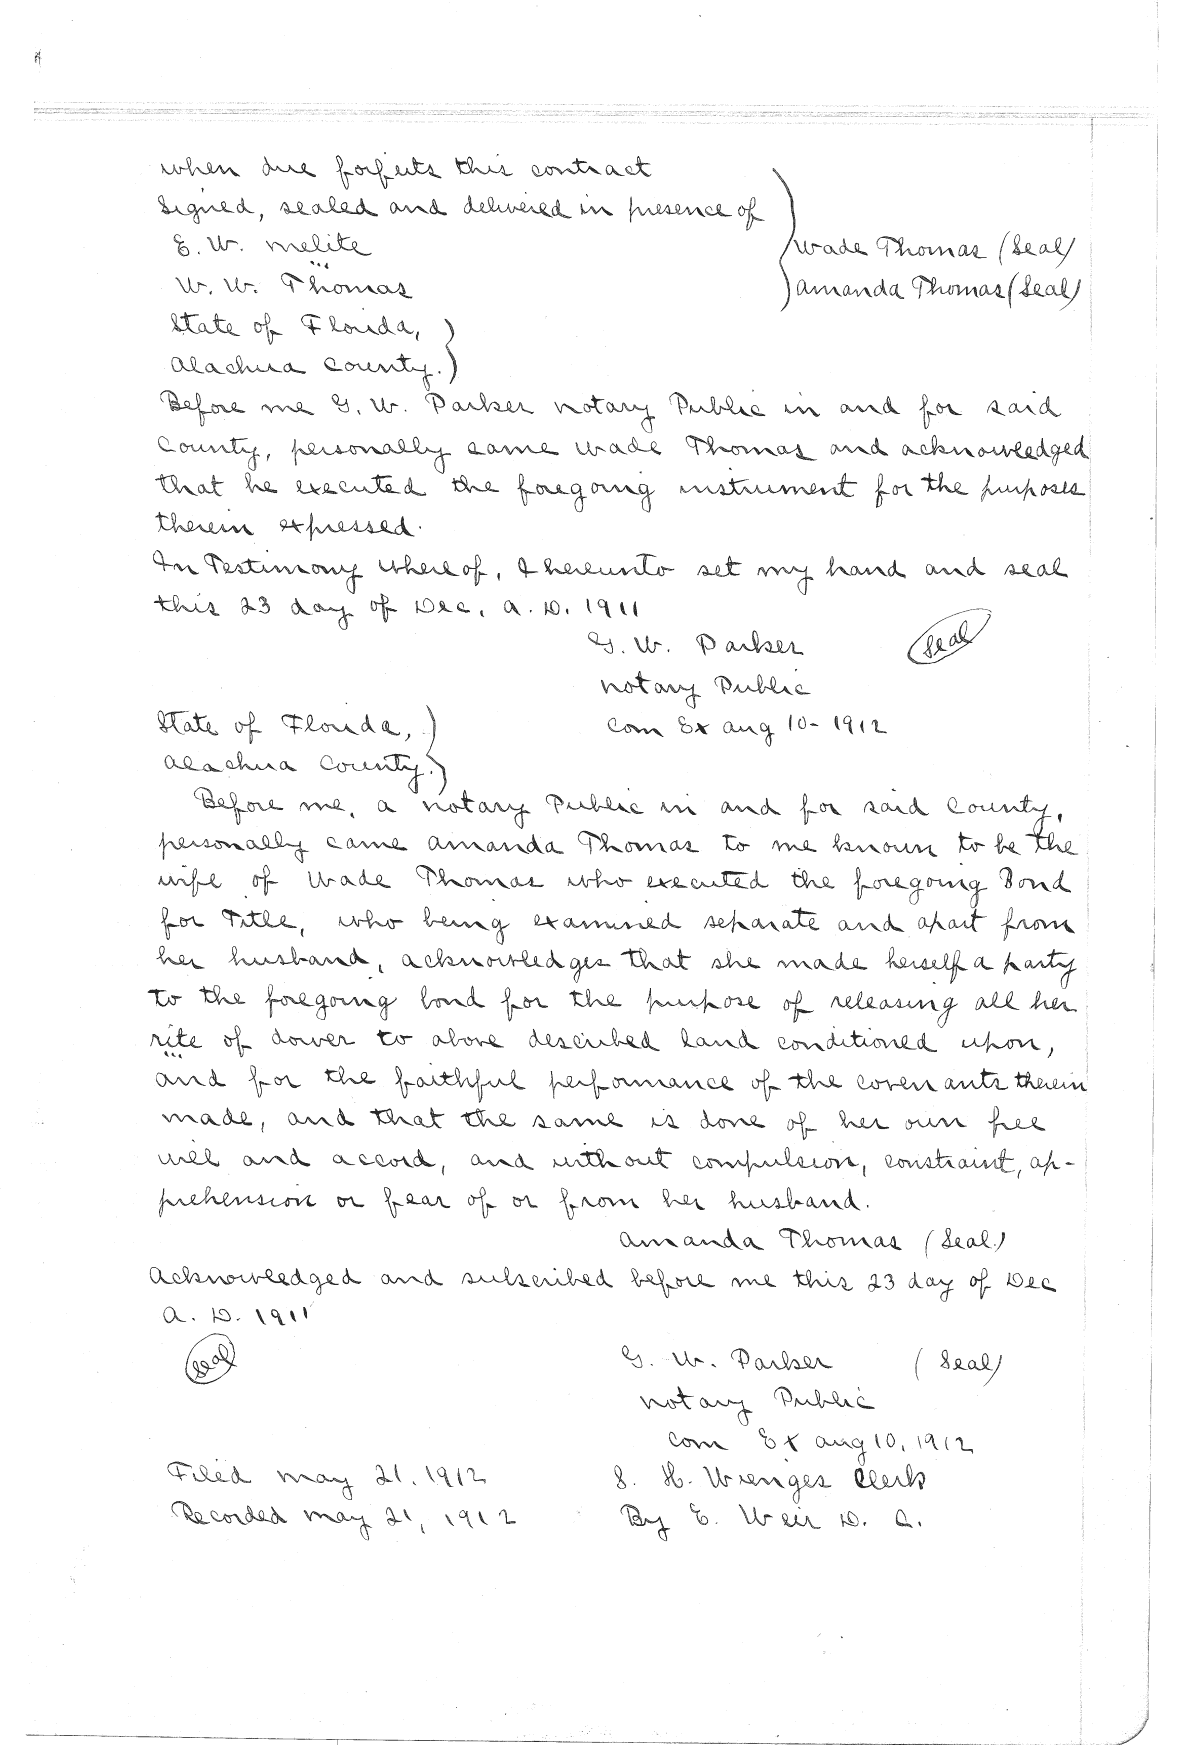 when due forfeits this contract
Signed, sealed and delivered in presence of
E. W. Melite
Wade Thomas (Seal)
W. W. Thomas
Amanda Thomas (Seal)
State of Florida,
Alachua County.
Before me G. W. Parker Notary Public in and for said
County, personally came Wade Thomas and acknowledged
that he executed the foregoing instrument for the purposes
therein expressed.
In Testimony Whereof, I hereunto set my hand and seal
this 23 day of Dec, A. D. 1911
G. W. Parker (Seal)
Notary Public
State of Florida, Com Ex Aug 10-1912
Alachua County.
Before me, a Notary Public in and for said County,
personally came Amanda Thomas to me known to be the
wife of Wade Thomas who executed the foregoing Bond
for Title, who being examined separate and apart from
her husband, acknowledges that she made herself a party
to the foregoing bond for the purpose of releasing all her
rite of dower to above described land conditioned upon,
and for the faithful performance of the covenants therein
made, and that the same is done of her own free
will and accord, and without compulsion, constraint, ap-
prehension or fear of or from her husband.
Amanda Thomas (Seal)
Acknowledged and subscribed before me this 23 day of Dec
A. D. 1911
Seal G. W. Parker (Seal)
Notary Public
Com Ex Aug 10, 1912
Filed May 21, 1912 S. H. Wienges Clerk
Recorded May 21, 1912 By E. Weir D. C.